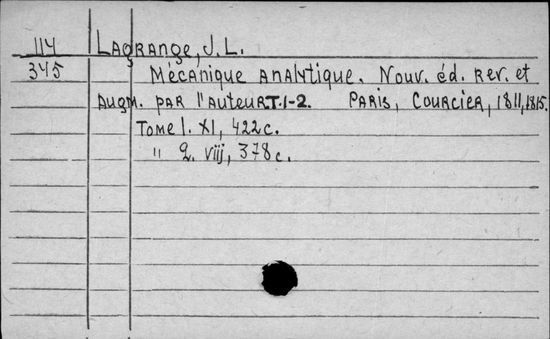 114 Lagrange, J. L.
345 Mécanique analytique. Nouv. éd. rev. et
augm. par l'auteur. T. 1-2. Paris, Courcier, 1811, 1815.
Tome 1. XI, 422 c.
" 2. viij, 378 c.